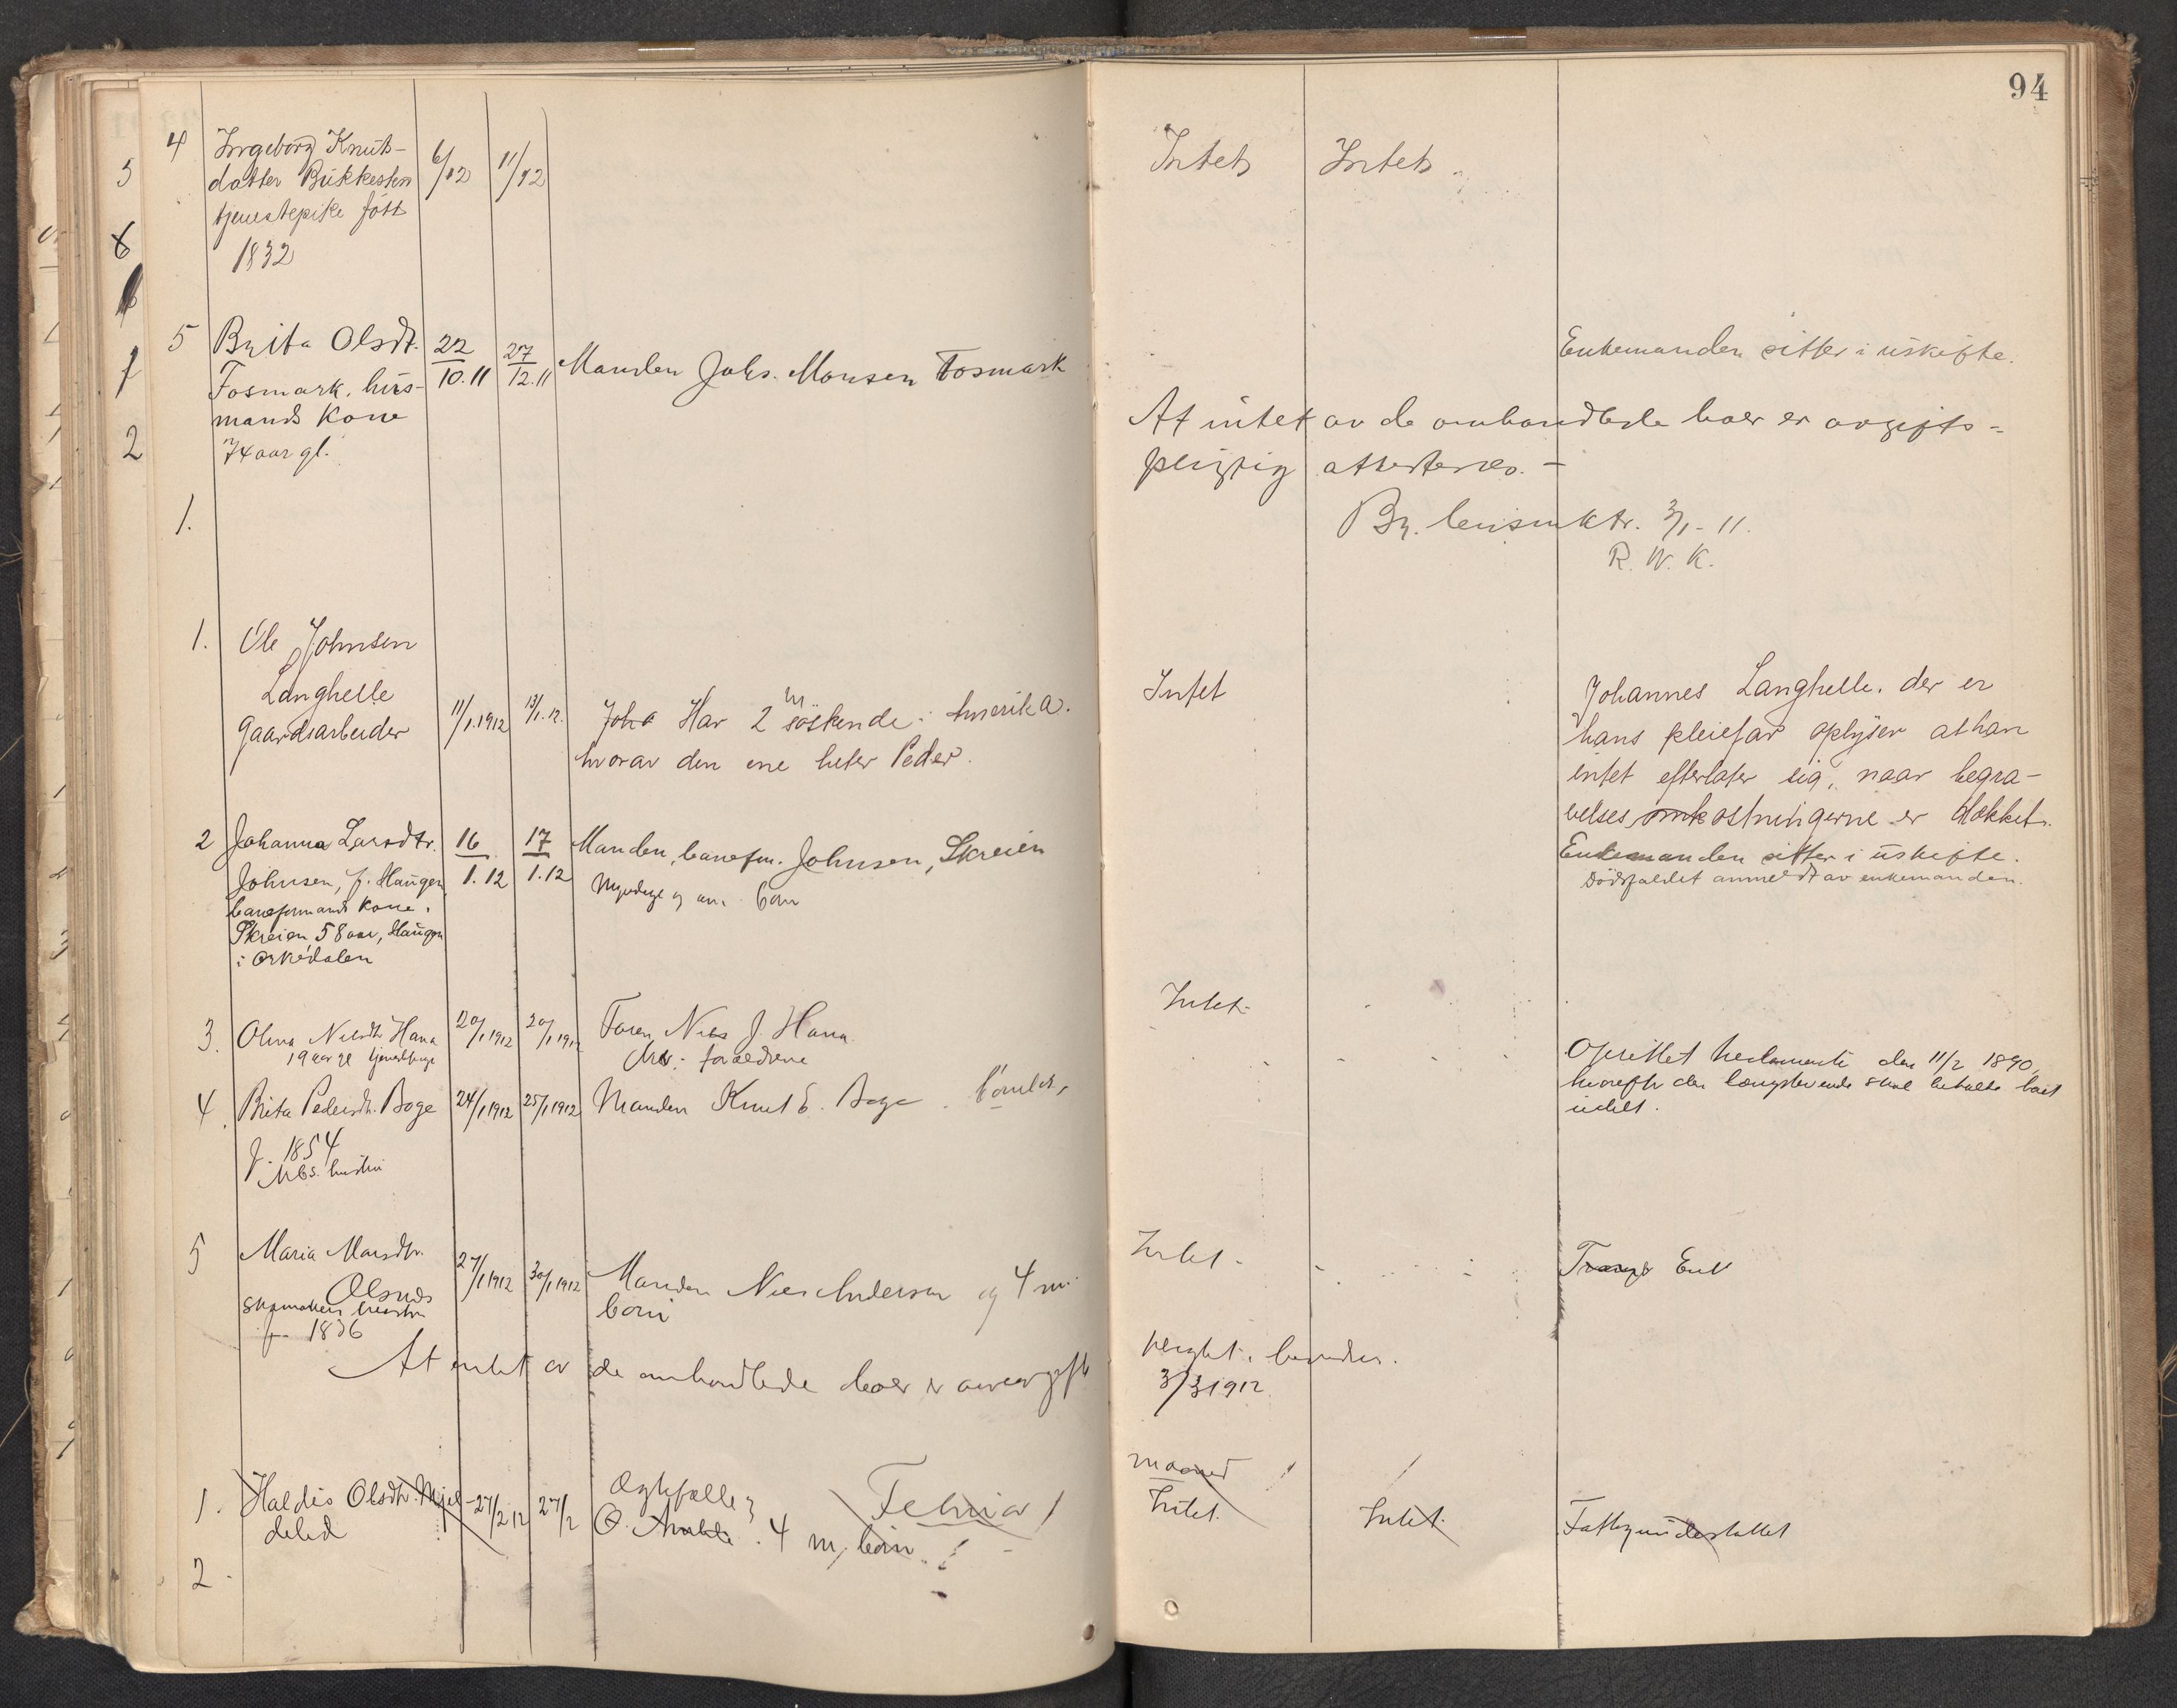 94
4 Ingeborg Knuts- 6/12 11/12 Intet Intet
datter Bukkesten
tjenestepike född
1832
5 Brita Olsdt. 22/10.11 27/12.11 Manden Johs. Monsen Fosmark Enkemanden sitter i uskifte.
Fosmark, hus-
mands kone
74 aar gl.
At intet av de omhandlede boer er avgifts-
pligtig attesteres. -
1.
By. lensmktr. 3/1 - 11.
R. W. K.
1. Ole Johnsen
Langhelle
Gaardsarbeider 11/1.1912 13/1.12. Har 2 söskende i Amerika.
hvorav den ene heter Peder.
Intet
Johannes Langhelle. der er
hans pleiefar oplyser at han
intet efterlater sig, naar begra-
velses omkostningerne er dækket.
2 Johanna Larsdtr. 16/1.12 17/1.12 Manden, banefm. Johnsen, Skreien Enkemanden sitter i uskifte.
Johnsen, f. Haugen Dödsfaldet anmeldt av enkemanden.
baneformands kone.
Skreien 58 aar, Haugen
i Orkedalen
3. Olina Nilsdtr. Hana 20/1 1912 20/1 1912 Faren Nils J. Hana Intet
19 aar gl
forældrene
4. Brita Pedersdtr. Boge 24/1 1912 25/1 1912 Manden Knut E. Boge Oprettet testamente den 11/2 1890,
hvorefter den længstlevende skal beholde boet
udelt.
f. 1854
5 Maria Monsdtr. 27/1 1912 30/1 1912 Manden Nils Anderson og 4 m. Intet
börn
Olsnes
skomakers hustru
f. 1836
At intet av de omhandlede boer er
3/3 1912
Februar maaned
1. Haldis Olsdtr. Mjel- 27/2 12 27/2 Ægtefælle
deled O. 4 m börn Intet. Intet. Fattigunderstøttet
2
5
6
1
2